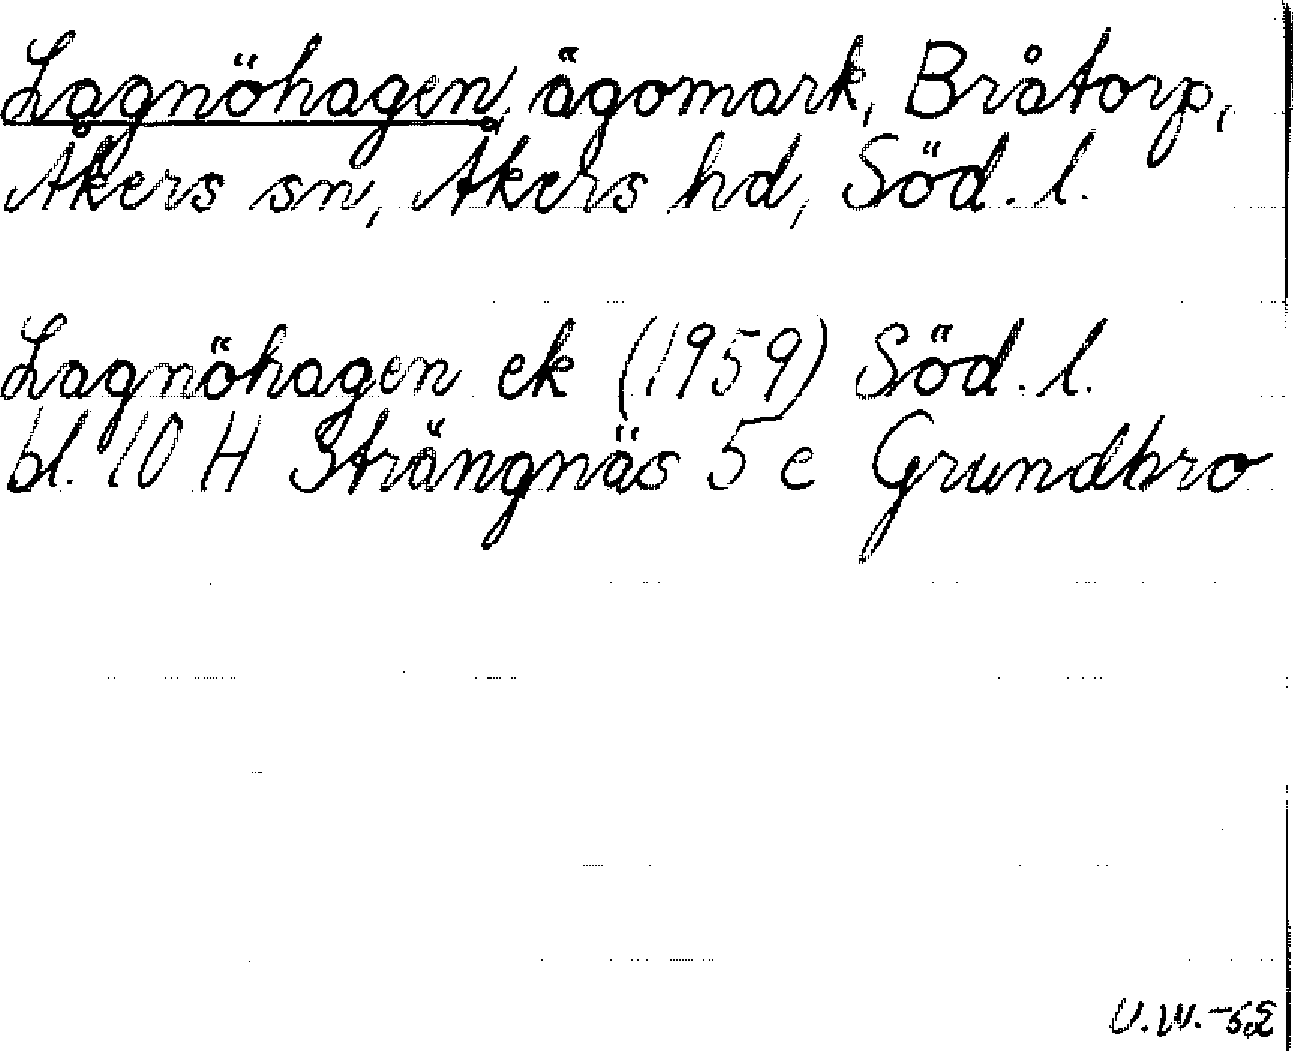 Lagnöhagen, ägomark, Bråtorp,
Åkers sn, Åkers hd, Söd. l.
Lagnöhagen ek (1959) Söd. l.
bl. 10 H Strängnäs 5 e Grundbro